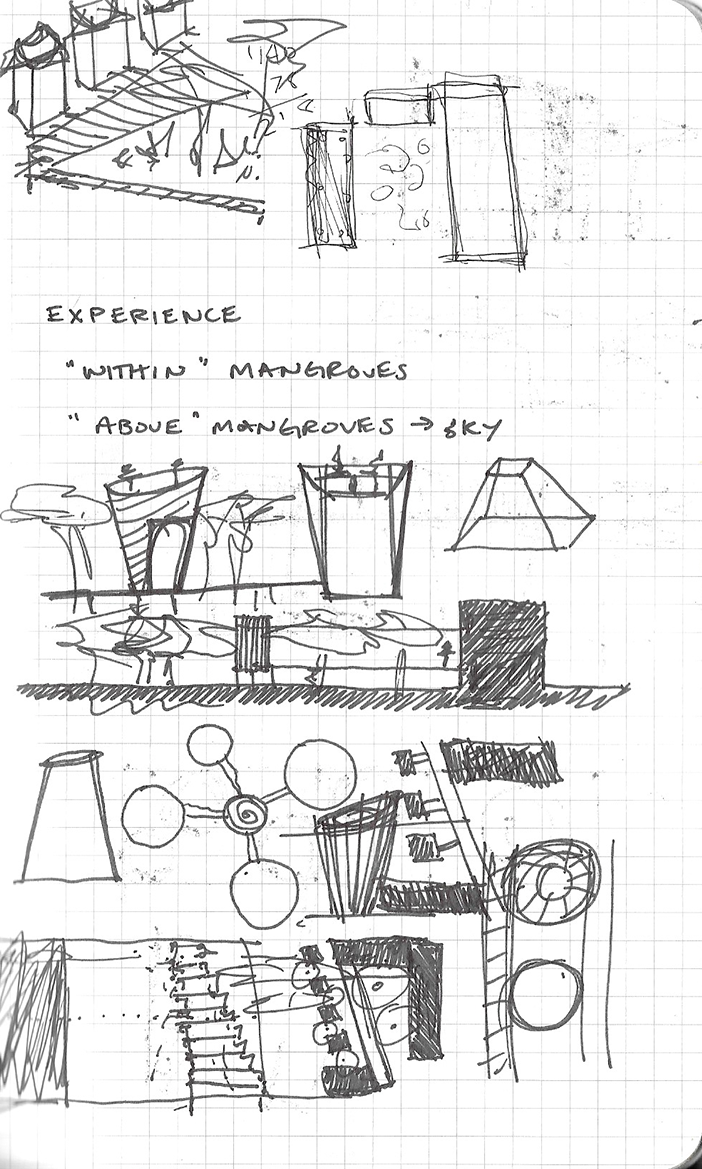 EXPERIENCE
"WITHIN" MANGROVES
"ABOVE" MANGROVES → SKY